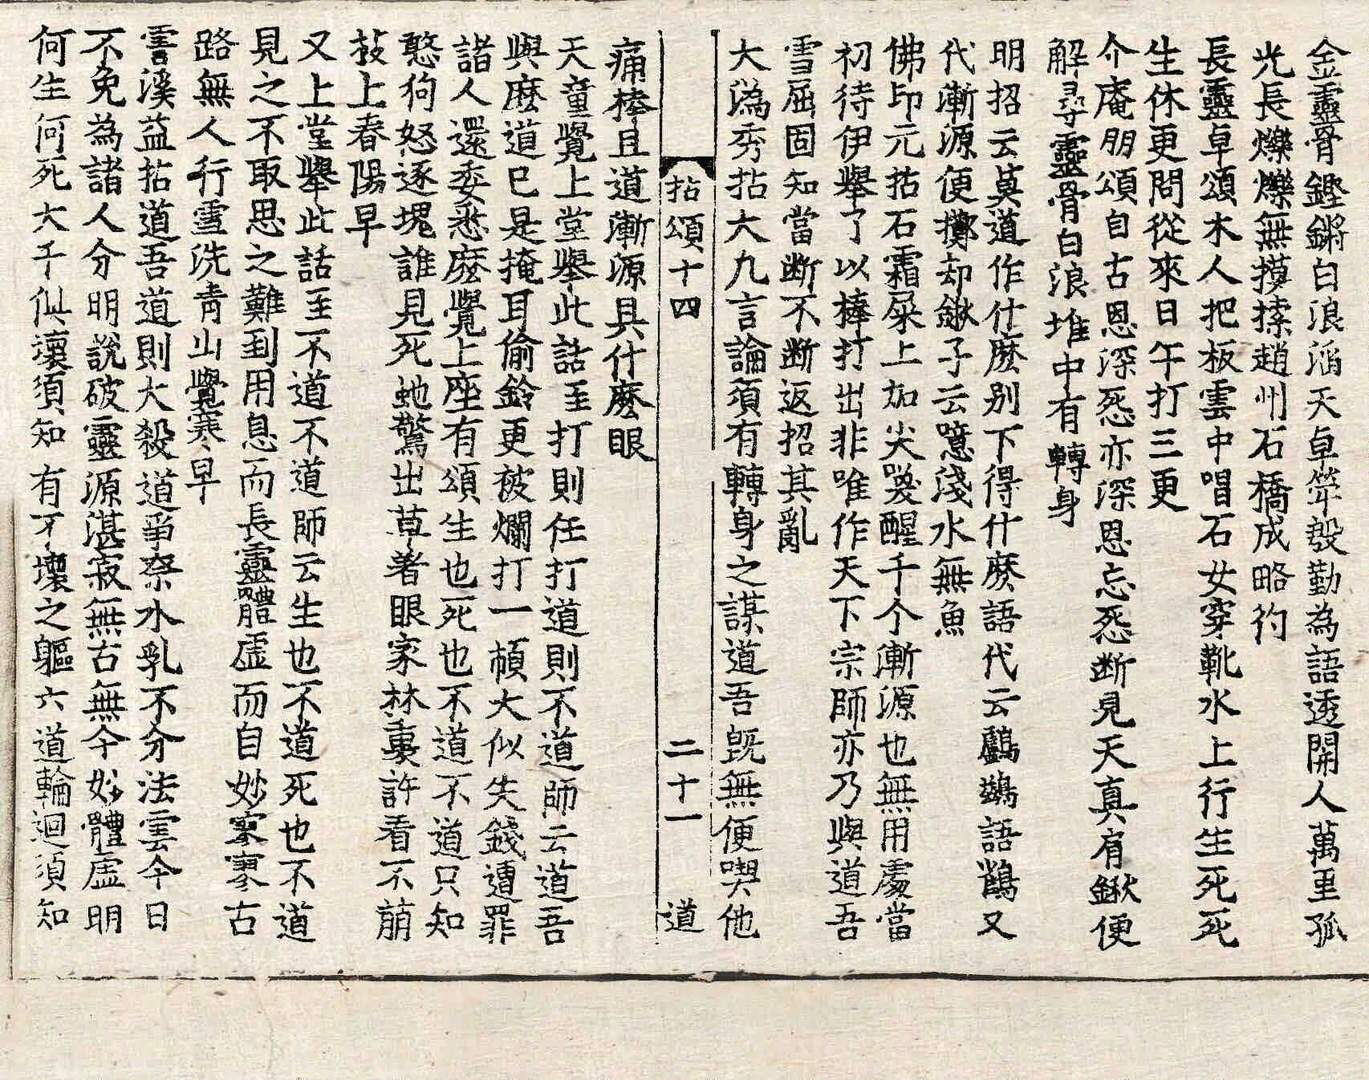 金靈骨鏗鏘白浪滔天卓犖殷勤為語透開人萬里孤
光長爍爍無摸𢱢趙州石橋成略彴
長靈卓頌木人把板雲中唱石女穿靴水上行生死死
生休更問從來日午打三更
介庵朋頌自古恩深𢙣亦深恩忘𢙣断見天真有鍬便
解尋靈骨白浪堆中有轉身
明招云莫道作什麽别下得什麽語代云鸕鷀語鶴又
代漸源便擲却鍬子云噫淺水無魚
佛印元拈石霜屎上加尖喚醒千个漸源也無用處當
初待伊舉了以棒打出非唯作天下宗師亦乃與道吾
雪屈固知當断不断返招其亂
大溈秀拈大凡言論須有轉身之謀道吾旣無便喫他
拈頌十四 二十一 道
痛棒且道漸源具什麽眼
天童覺上堂舉此話至打則任打道則不道師云道吾
與麽道已是掩耳偷鈴更被爛打一頓大似失錢遭罪
諸人還委悉麽覺上座有頌生也死也不道不道只知
憨狗怒逐塊誰見死虵驚出草著眼家林裏許看不萠
枝上春陽早
又上堂舉此話至不道不道師云生也不道死也不道
見之不取思之難到用息而長靈體虛而自妙寥寥古
路無人行雪洗靑山覺寒早
雲溪益拈道吾道則大殺道當柰水乳不分法雲今日
不免為諸人分明說破靈源湛寂無古無今妙體虛明
何生何死大千似壞須知有不壞之軀六道輪迴須知